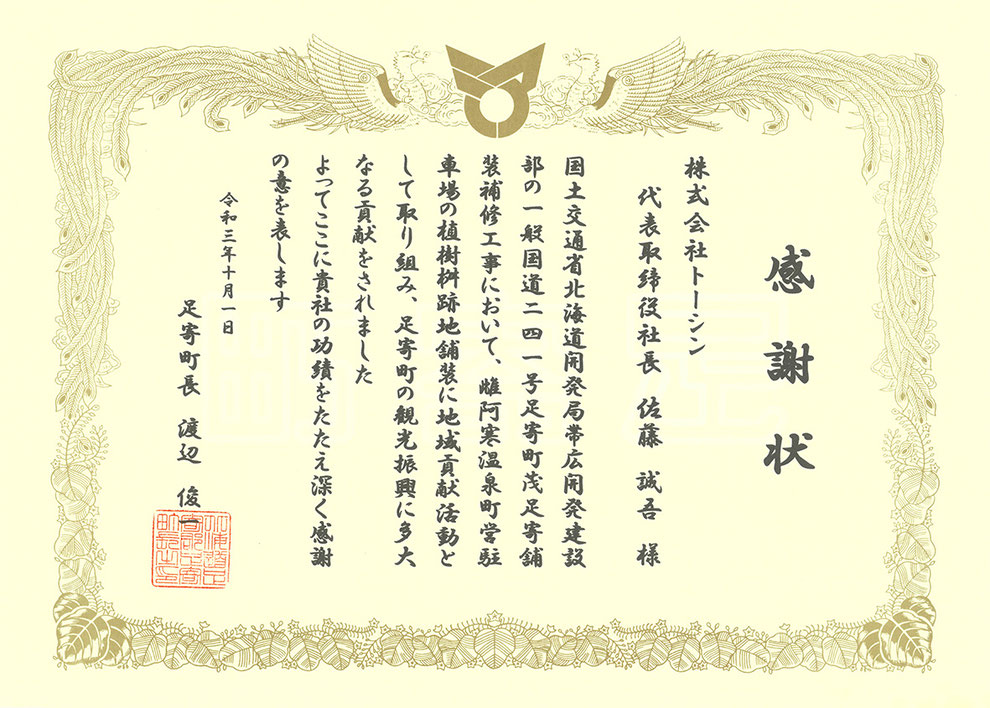 感謝状
株式会社トーシン
代表取締役社長 佐藤 誠吾 様
国土交通省北海道開発局帯広開発建設
部の一般国道二四一号足寄町茂足寄舗
装補修工事において、雌阿寒温泉町営駐
車場の植樹桝跡地舗装に地域貢献活動と
して取り組み、足寄町の観光振興に多大
なる貢献をされました
よってここに貴社の功績をたたえ深く感謝
の意を表します
令和三年十月一日
足寄町長 渡辺 俊一